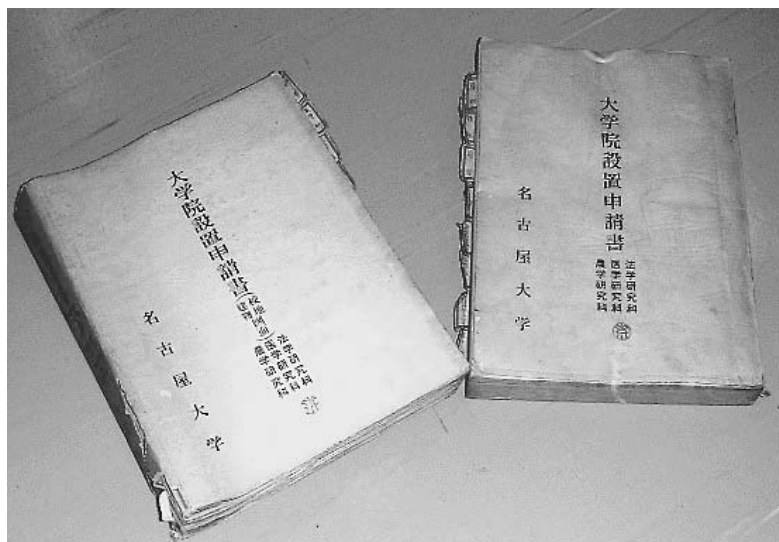 大学院設置申請書
法学研究科
医学研究科
農学研究科
名古屋大学
大学院設置申請書
法学研究科
医学研究科
農学研究科
名古屋大学